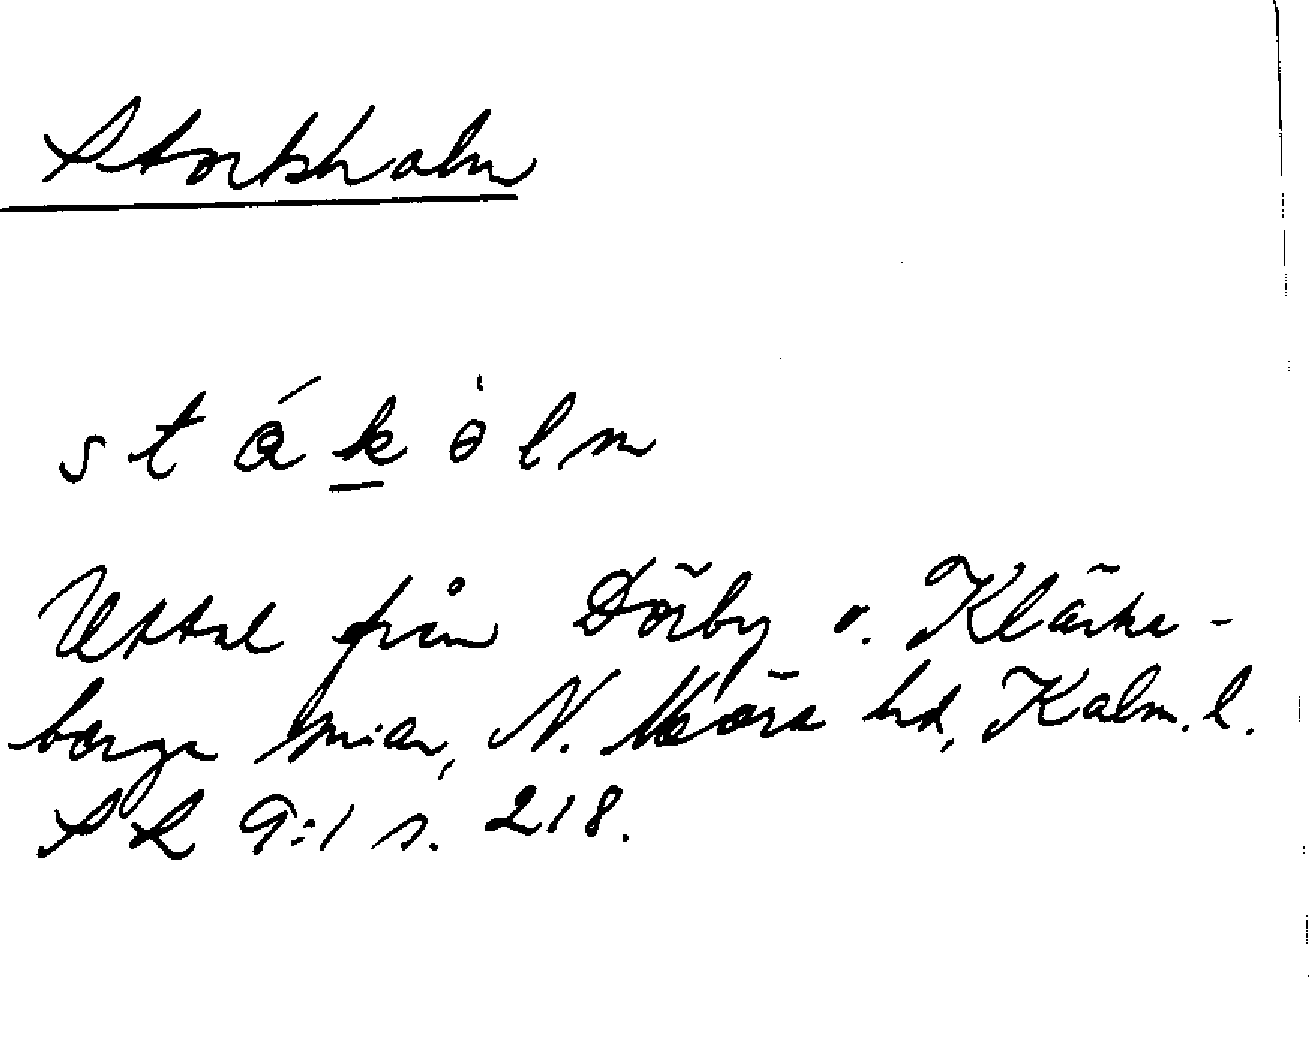 Storkholm
stákölm
Uttal från Dörby o. Kläcke-
berga snar, N. Möre hd, Kalm. l.
SL 9:1 s. 218.